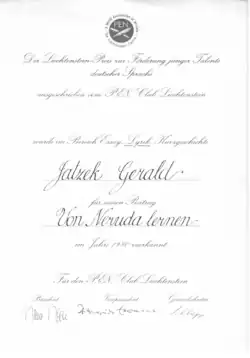 PEN
Der Liechtenstein-Preis zur Förderung junger Talente
deutscher Sprache
ausgeschrieben vom P.E.N. Club Liechtenstein
wurde im Bereich Essay Lyrik Kurzgeschichte
Jatzek Gerald
für seinen Beitrag
Von Neruda lernen
im Jahre 1980 zuerkannt
Für den P.E.N. Club Liechtenstein
Präsident Vizepräsident Generalsekretär